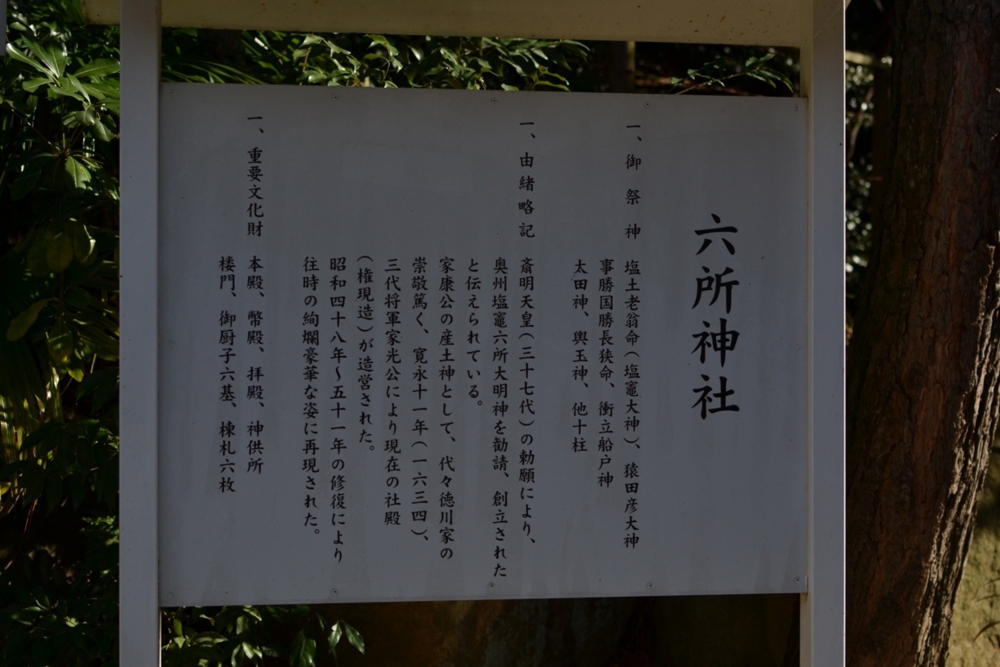 六所神社
一、御祭神 塩土老翁命(塩竈大神)、猿田彦大神
事勝国勝長狭命、衝立船戸神
太田神、興玉神、他十柱
一、由緒略記 斎明天皇(三十七代)の勅願により、
奥州塩竈六所大明神を勧請、創立された
と伝えられている。
家康公の産土神として、代々徳川家の
崇敬篤く、寛永十一年(一六三四)、
三代将軍家光公により現在の社殿
(権現造)が造営された。
昭和四十八年~五十一年の修復により
往時の絢爛豪華な姿に再現された。
一、重要文化財 本殿、幣殿、拝殿、神供所
楼門、御厨子六基、棟札六枚